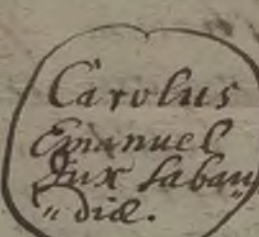 Carolus
Emanuel
Dux Sabau„
„diæ.